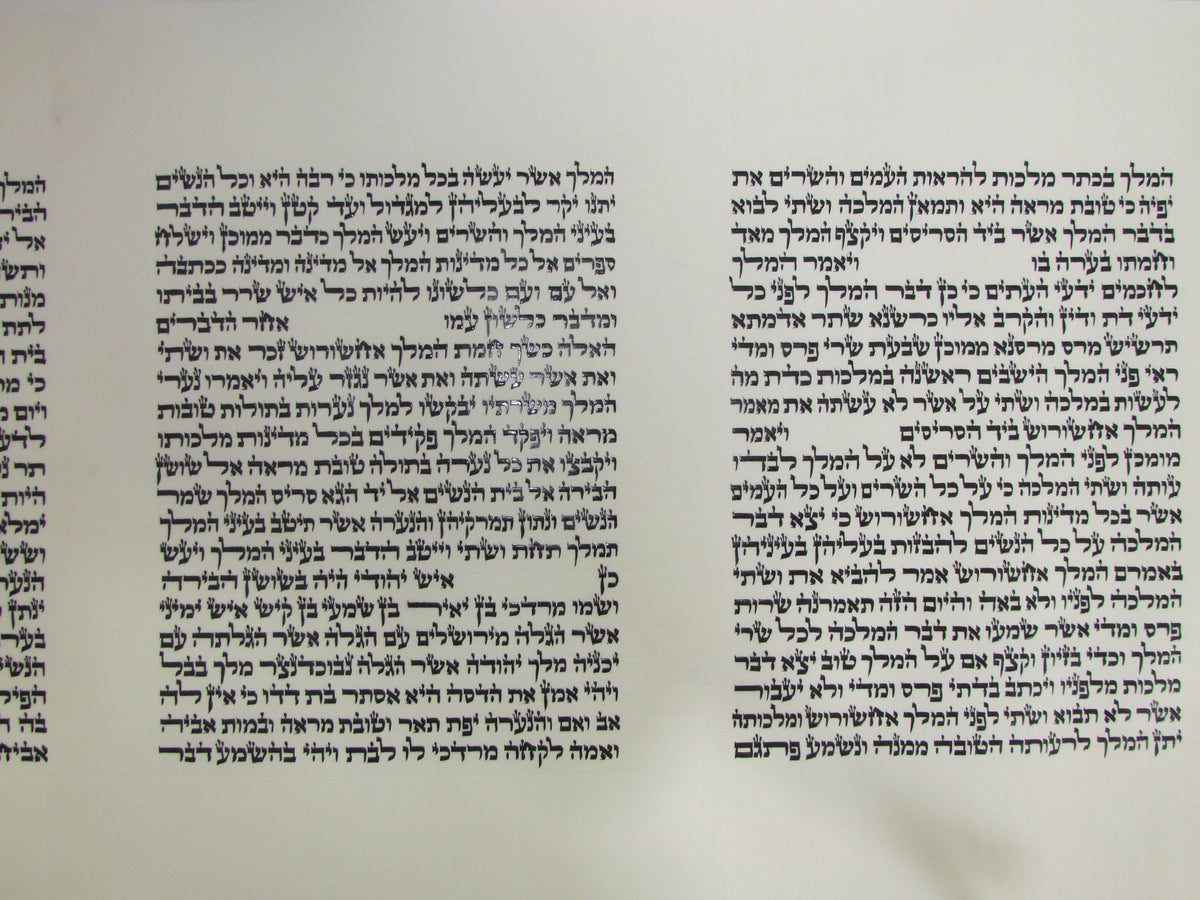 המלך בכתר מלכות להראות העמים והשרים את
יפיה כי טובת מראה היא ותמאן המלכה ושתי לבוא
בדבר המלך אשר ביד הסריסים ויקצף המלך מאד
וחמתו בערה בו ויאמר המלך
לחכמים ידעי העתים כי כן דבר המלך לפני כל
ידעי דת ודין והקרב אליו כרשנא שתר אדמתא
תרשיש מרס מרסנא ממוכן שבעת שרי פרס ומדי
ראי פני המלך הישבים ראשנה במלכות כדת מה
לעשות במלכה ושתי על אשר לא עשתה את מאמר
המלך אחשורוש ביד הסריסים ויאמר
מומכן לפני המלך והשרים לא על המלך לבדו
עותה ושתי המלכה כי על כל השרים ועל כל העמים
אשר בכל מדינות המלך אחשורוש כי יצא דבר
המלכה על כל הנשים להבזות בעליהן בעיניהן
באמרם המלך אחשורוש אמר להביא את ושתי
המלכה לפניו ולא באה והיום הזה תאמרנה שרות
פרס ומדי אשר שמעו את דבר המלכה לכל שרי
המלך וכדי בזיון וקצף אם על המלך טוב יצא דבר
מלכות מלפניו ויכתב בדתי פרס ומדי ולא יעבור
אשר לא תבוא ושתי לפני המלך אחשורוש ומלכותה
יתן המלך לרעותה הטובה ממנה ונשמע פתגם
המלך אשר יעשה בכל מלכותו כי רבה היא וכל הנשים
יתנו יקר לבעליהן למגדול ועד קטן וייטב הדבר
בעיני המלך והשרים ויעש המלך כדבר ממוכן וישלח
ספרים אל כל מדינות המלך אל מדינה ומדינה ככתבה
ואל עם ועם כלשונו להיות כל איש שרר בביתו
ומדבר כלשון עמו אחר הדברים
האלה כשך חמת המלך אחשורוש זכר את ושתי
ואת אשר עשתה ואת אשר נגזר עליה ויאמרו נערי
המלך משרתיו יבקשו למלך נערות בתולות טובות
מראה ויפקד המלך פקידים בכל מדינות מלכותו
ויקבצו את כל נערה בתולה טובת מראה אל שושן
הבירה אל בית הנשים אל יד הגא סריס המלך שמר
הנשים ונתון תמרקיהן והנערה אשר תיטב בעיני המלך
תמלך תחת ושתי וייטב הדבר בעיני המלך ויעש
כן איש יהודי היה בשושן הבירה
ושמו מרדכי בן יאיר בן שמעי בן קיש איש ימיני
אשר הגלה מירושלים עם הגלה אשר הגלתה עם
יכניה מלך יהודה אשר הגלה נבוכדנצר מלך בבל
ויהי אמן את הדסה היא אסתר בת דדו כי אין לה
אב ואם והנערה יפת תאר וטובת מראה ובמות אביה
ואמה לקחה מרדכי לו לבת ויהי בהשמע דבר
המלך
הביר
אל
ותש
מנות
לתת
בית
כי
ויום
לדע
תר
היות
ימלא
ששי
הנער
ינתן
בער
הנשי
הפיל
בה
אביח